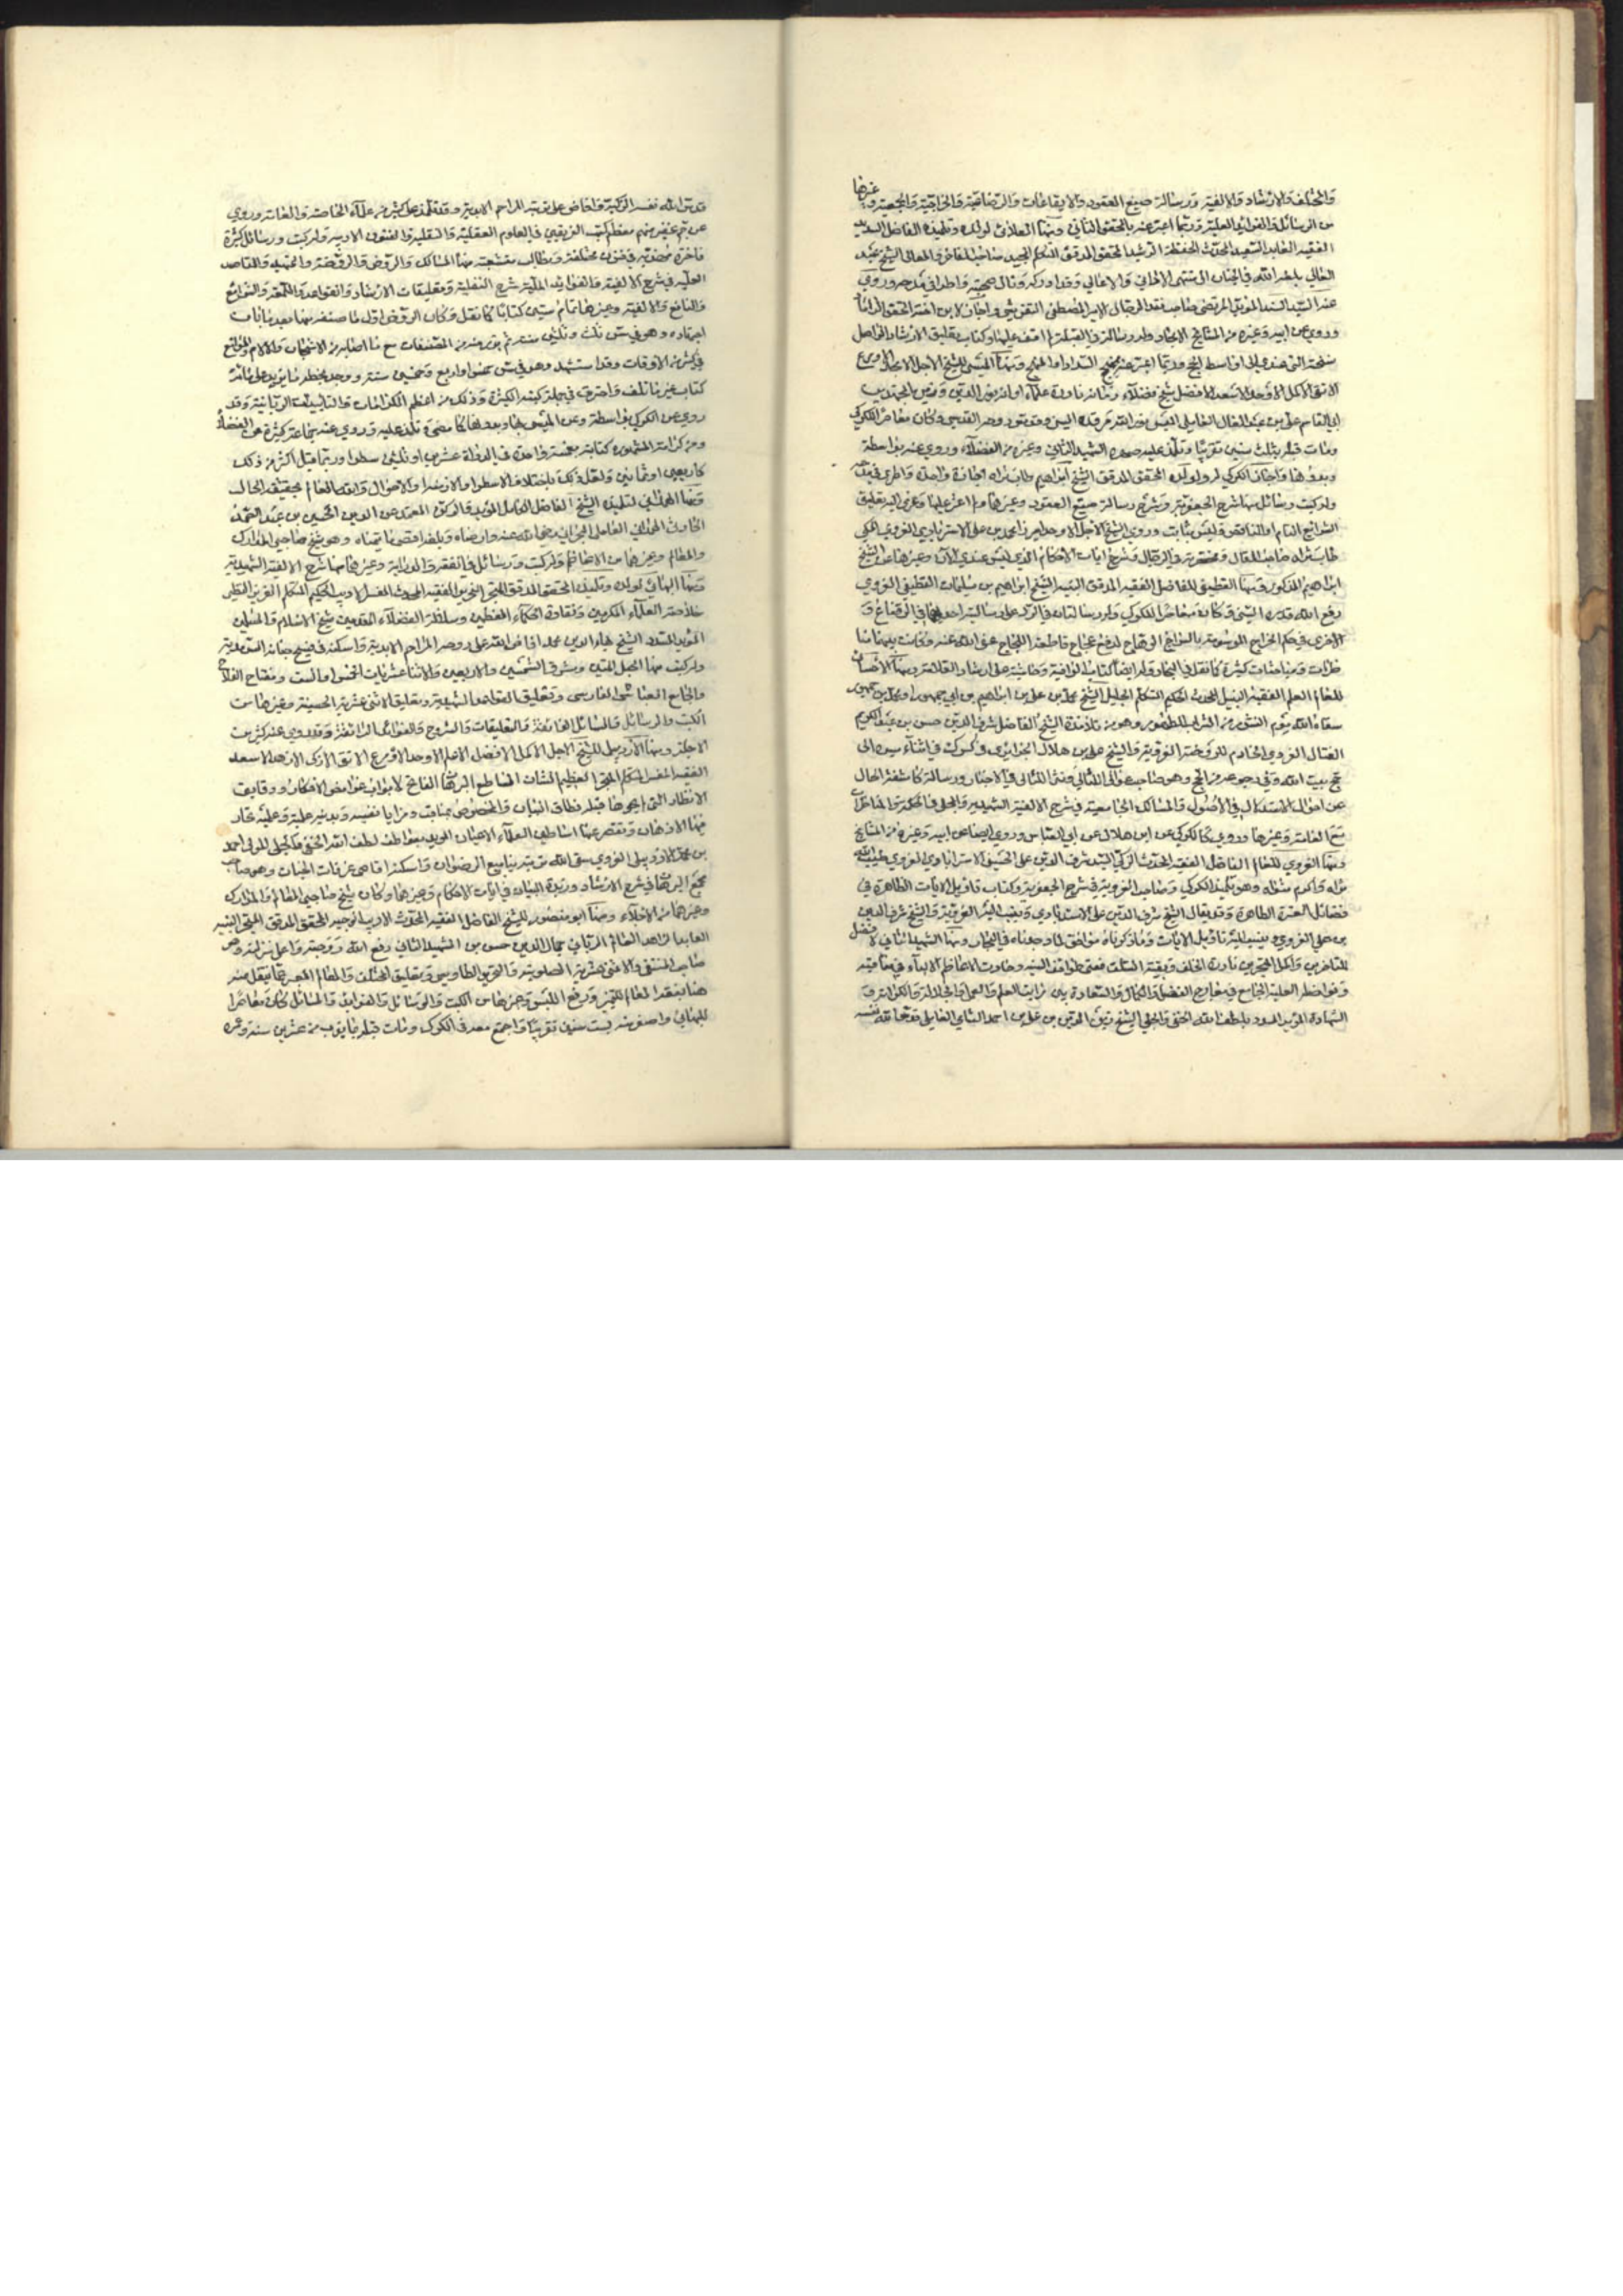 والمختلف والارشاد والالفية ورسالة صيغ العقود والايقاعات والرضاعية والخراجية والجعفرية وغيرها
من الرسائل والفوائد العلية وربما اعبر عنه بالمحقق الثاني ومنها العلائي لولده وتلميذه الفاضل السديد
الفقيه العابد السعيد المحدث الحفظة الرشيد المحقق المدقق المتكلم المجيد صاحب المفاخر والمعالي الشيخ عبد
العالي بلغه الله في الجنان الى منتهى الاماني والاعالي وقد ادركه ونال صحبته واطرا في مدحه وروى
عنه السيد السند المؤيد المرتضى صاحب نقد الرجال الامير مصطفى التفريشي واجاز لابن اخته المحقق الداماد
وروى عن ابيه وغيره من المشايخ الامجاد وله رسالة في القبلة لم اقف عليها وكتاب تعليق الارشاد الواصل
نسخته الى عندي الى اواسط الحج وربما اعبر عنه بمنهج السداد او المنهج ومنها الميسي للشيخ الاجل الاعلم الاورع
الاتقى الاكمل الاوحد الاسعد الافضل شيخ فضلاء زمانه نادرة علماء اوانه نور الدين وزين المجتهدين
ابي القاسم علي بن عبد العال العاملي الميسي نور الله مرقده وكان معاصر الكركي
ومات قبله بثلث سنين تقريبا وتلمذ عليه صهره الشهيد الثاني وغيره من الفضلاء وروى عنه بواسطة
وبدونها واجاز الكركي له ولولده المحقق المدقق الشيخ ابراهيم طاب ثراه اجازة واحدة واطرى في مدحه
وله كتب ورسائل منها شرح الجعفرية وشرح رسالة صيغ العقود وغيرهما ولم اعثر عليها وعزى اليه تعليق
الشرائع التام او الناقص وليس بثابت وروى الشيخ الاجل الاوحد ميرزا محمد بن علي الاسترابادي الغروي المكي
طاب ثراه صاحب المقال ومختصريه في الرجال وشرح ايات الاحكام الذي ليس عندي الان وغيرها عن الشيخ
ابراهيم المذكور ومنها القطيفي للفاضل الفقيه المدقق النبيه الشيخ ابراهيم بن سليمان القطيفي الغروي
رفع الله قدره السني وكان معاصر الكركي وله رسالتان في الرد على رسالتيه احديهما في الرضاع و
الاخرى في حكم الخراج الموسومة بالسراج الوهاج لدفع عجاج قاطعة اللجاج عفى الله عنه وكانت بينهما مناـ
ظرات ومباحثات كثيرة كما نقل في البحار وله ايضا كتاب الوافية وحاشية على ارشاد العلامة ومنها الاحسائي
للعالم العلم الفقيه النبيل المحدث الحكيم المتكلم الجليل الشيخ محمد بن علي بن ابراهيم بن ابي جمهور او محمد بن جمهور
سقاه الله يوم النشور من الشراب الطهور وهو من تلامذة الشيخ الفاضل شرف الدين حسن بن عبد الكريم
الفتال الغروي الخادم للروضة الغروية والشيخ علي بن هلال الجزائري في كرك في اثناء سيره الى
حج بيت الله وفي رجوعه من الحج وهو صاحب عوالي اللئالي ونثر اللئالي في الاخبار ورسالة كاشفة الحال
عن احوال الاستدلال في الاصول والمسالك الجامعية في شرح الالفية الشهيدية والمجلي في الحكمة والمناظرات
مع العامة وغيرها وروى كالكركي عن ابن هلال عن ابي العباس وروى ايضا عن ابيه وغيره من المشايخ
ومنها الغروي للعالم الفاضل الفقيه المحدث الزكي السيد شرف الدين علي الحسيني الاسترابادي الغروي طيب الله
ثراه واكرم مثواه وهو تلميذ الكركي وصاحب الغروية في شرح الجعفرية وكتاب تاويل الايات الظاهرة في
فضائل العترة الطاهرة وقد يقال الشيخ شرف الدين علي الاسترابادي وينسب اليه الغروية والشيخ شرف الدين
بن علي الغروي وينسب اليه تاويل الايات وما ذكرناه موافق لما وجدناه في البحار ومنها الشهيد الثاني لافضل
المتاخرين واكمل المتبحرين نادرة الخلف وبقية السلف مفتي طوائف
الجامع في معارج الفضل والكمال والسعادة بين مراتب العلم والعمل والجلالة والكرامة و
الشهادة المؤيد المسدد بلطف الله الخفي والجلي الشيخ زين الدين بن علي بن احمد الشامي العاملي قدس الله نفسه
قدس الله نفسه الزكية وافاض على تربته المراحم الابدية وقد تلمذ على كثير من علماء الخاصة والعامة وروى
عن جم غفير منهم معظم كتب الفريقين في العلوم العقلية والنقلية والفنون الادبية وله كتب ورسائل كثيرة
فاخرة في فنون مختلفة ومطالب متشعبة منها المسالك والروض والروضة والتمهيد والمقاصد
العلية في شرح الالفية والفوائد الملية شرح النفلية وتعليقات الارشاد والقواعد والشرائع
والنافع والالفية وغيرها تمام ستين كتابا كما نقل وكان الروض اول ما صنفه منها بعد ما بان
اجتهاده وهو في سن ثلث وثلثين سنة
في كثير من الاوقات وقد استشهد وهو في سن خمس او اربع وخمسين سنة ووجد بخطه ما يزيد على مائة
كتاب غير ما تلف واحترق في جملة كتبه الكثيرة وذلك من اعظم الكرامات والتاييدات الربانية وقد
روى عن الكركي بواسطة وعن الميسي بها وبدونها كما مضى وتلمذ عليه وروى عنه جماعة كثيرة من الفضلاء
ومن كرامته المشهورة كتابته بغمسة واحدة في الدواة عشرين او ثلثين سطرا وربما قيل اكثر من ذلك
كاربعين او ثمانين ولعل ذلك باختلاف الاسطر او الازمنة او الاحوال والله العالم بحقيقة الحال
ومنها الهمداني لتلميذه الشيخ الفاضل الكامل المؤيد والركن المعتمد عز الدين الحسين بن عبد الصمد
الحارثي الهمداني العاملي الجبعي رضي الله عنه وارضاه وبلغه اقصى ما يتمناه وهو شيخ صاحبي المدارك
والمعالم وغيرهما من الاعاظم وله كتب ورسائل في الفقه والدراية وغيرهما منها شرح الالفية الشهيدية
ومنها البهائي لولده وتلميذه المحقق المدقق النحرير الفقيه المحدث المفسر الاديب الحكيم المتكلم الغريز النظير
خلاصة العلماء المكرمين ونقاوة الحكماء المعظمين وسلالة الفضلاء المقدمين شيخ الاسلام والمسلمين
المؤيد المسدد الشيخ بهاء الدين محمد افاض الله على روحه المراحم الابدية واسكنه في فسيح جنانه السرمدية
وله كتب منها الحبل المتين ومشرق الشمسين والاربعين والاثنا عشريات الخمس او الست ومفتاح الفلاح
والجامع العباسي الفارسي وتعليق القواعد الشهيدية وتعليق الاثني عشرية الحسنية وغيرها من
الكتب والرسائل والمسائل الفائقة والتعليقات والشروح والفوائد الرائقة وقد روى عنه كثير من
الاجلة ومنها الاردبيلي للشيخ الاجل الاكمل الافضل الاعلم الاوحد الاورع الاتقى الازكى الازهد الاسعد
الفقيه المفسر المتكلم العظيم الشان الساطع البرهان الفاتح لابواب غوامض الافكار ودقايق
الانظار التي لم يحم حولها قبله المخصوص بمناقب ومزايا نفيسة وبدنية علمية وعملية تحار
فيها الاذهان وتقصر عنها اساطين العلماء الاعيان المؤيد بعواطف لطف الله الخفي والجلي المولى احمد
بن محمد الاردبيلي الغروي سقى الله تربته ينابيع الرضوان واسكنه اقاصى غرفات الجنان وهو صاحب
مجمع البرهان في شرح الارشاد وزبدة البيان في ايات الاحكام وغيرهما وكان شيخ صاحبي المعالم والمدارك
وغيرهما من الاجلاء ومنها ابو منصور للشيخ الفاضل الفقيه المحدث الاديب الوجيه المحقق المدقق النبيه
العابد الزاهد العالم الرباني جمال الدين حسن بن الشهيد الثاني رفع الله درجته واعلى منزلته وهو
صاحب المنتقى والاثني عشرية الصلوتية والتحرير الطاوسي وتعليق المختلف والمعالم المعبر عما ينقل منه
هنا بفقه المعالم للتميز ورفع اللبس وغيرها من الكتب والرسائل والفوائد والمسائل وكان معاصرا
للبهائي واصغر منه بست سنين تقريبا واجتمع معه في الكرك ومات قبله بما يقرب من عشرين سنة وغيره